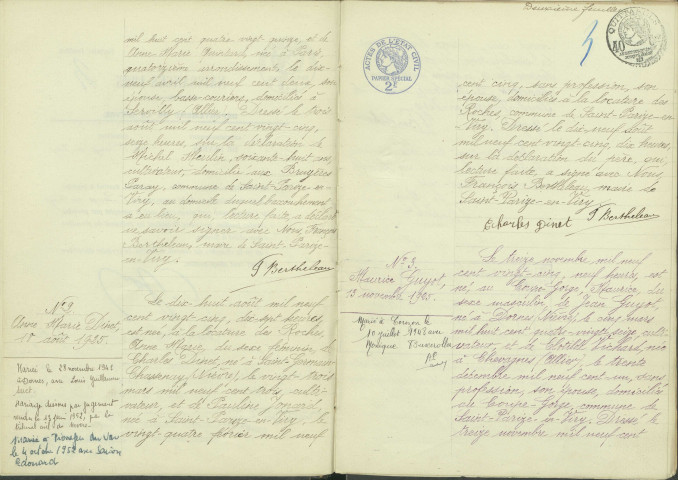 mil huit cent quatre vingt
Anne Marie née à Paris,
quatorzième arrondissement le dix-
neuf avril mil neuf cent deux, son
épouse basse-courière, domiciliés à
Allier. Dressé le trois
août mil neuf cent vingt-cinq,
seize heures, sur la déclaration de
Michel Moulin, soixante-huit ans,
cultivateur, domicilié aux Bruyères
commune de Saint-Parize-en-
Viry, au domicile duquel l'accouchement
a eu lieu, qui, lecture faite, a déclaré
ne savoir signer avec Nous, François
Bertheleau, maire de Saint-Parize-
en-Viry.
F Bertheleau
N° 2
Anne Marie Dinet,
18 août 1925.
Mariée le 28 novembre 1941
à avec Louis Guillaume
Mariage dissous par jugement
rendu le 1957 par le
tribunal civil de Nevers.
Mariée à
le 4 octobre 1958 avec
Edouard
Le dix huit août mil neuf
cent vingt-cinq, dix sept heures,
est née, à la locature des Roches,
Anne Marie, du sexe féminin, de
Charles Dinet, né à Saint-Germain
Chassenay (Nièvre), le vingt-trois
mars mil neuf cent trois, culti-
vateur, et de Pauline
née à Saint-Parize-en-Viry, le
vingt quatre février mil neuf
Deuxième feuille
ACTES DE L'ÉTAT CIVIL
PAPIER SPÉCIAL
2F
40
cent cinq, sans profession, son
épouse, domiciliés à la locature des
Roches, commune de Saint-Parize-en-
Viry. Dressé le dix neuf août
mil neuf cent vingt-cinq, dix heures,
sur la déclaration du père, qui,
lecture faite, a signé avec Nous,
François Bertheleau, maire de
Saint-Parize-en-Viry.
Charles Dinet F Bertheleau
N° 3
Maurice Guyot,
13 novembre 1925.
Marié à
le 10 juillet 1948 avec
Monique
Le treize novembre mil neuf
cent vingt-cinq, neuf heures, est
né au Gorge, Maurice, du
sexe masculin, de Jean Guyot,
né à Dornes, Nièvre, le cinq mars
mil huit cent quatre-vingt-seize, culti-
vateur, et de Clotilde née
à Chevagnes (Allier), le trente
décembre mil neuf cent un, sans
profession, son épouse, domiciliés
au Gorge, commune de
Saint-Parize-en-Viry. Dressé le
treize novembre mil neuf cent